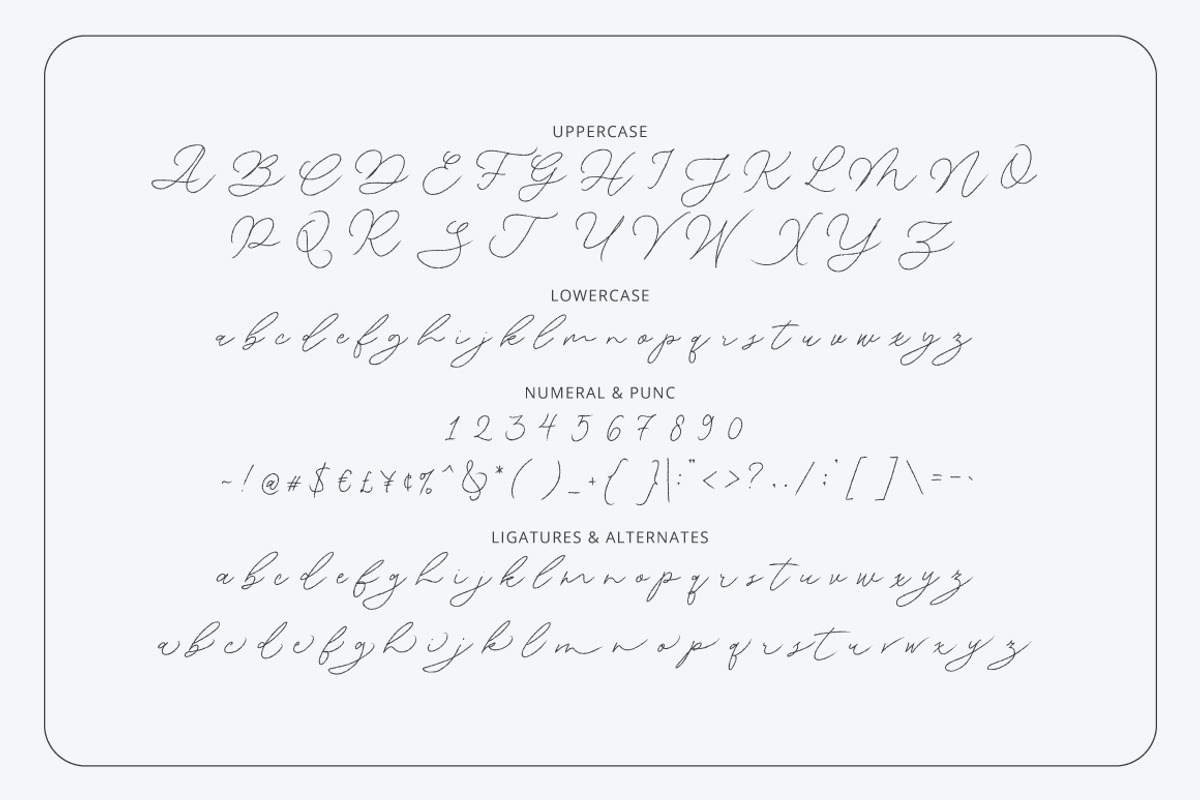 UPPERCASE
A B C D E F G H I J K L M N O
P Q R S T U V W X Y Z
LOWERCASE
a b c d e f g h i j k l m n o p q r s t u v w x y z
NUMERAL & PUNC
1 2 3 4 5 6 7 8 9 0
~ ! @ # $ € £ ¥ ¢ % ^ & * ( ) _ + { } | : " < > ? . . / ; ' [ ] \ = - `
LIGATURES & ALTERNATES
a b c d e f g h i j k l m n o p q r s t u v w x y z
a b c d e f g h i j k l m n o p q r s t u r w x y z